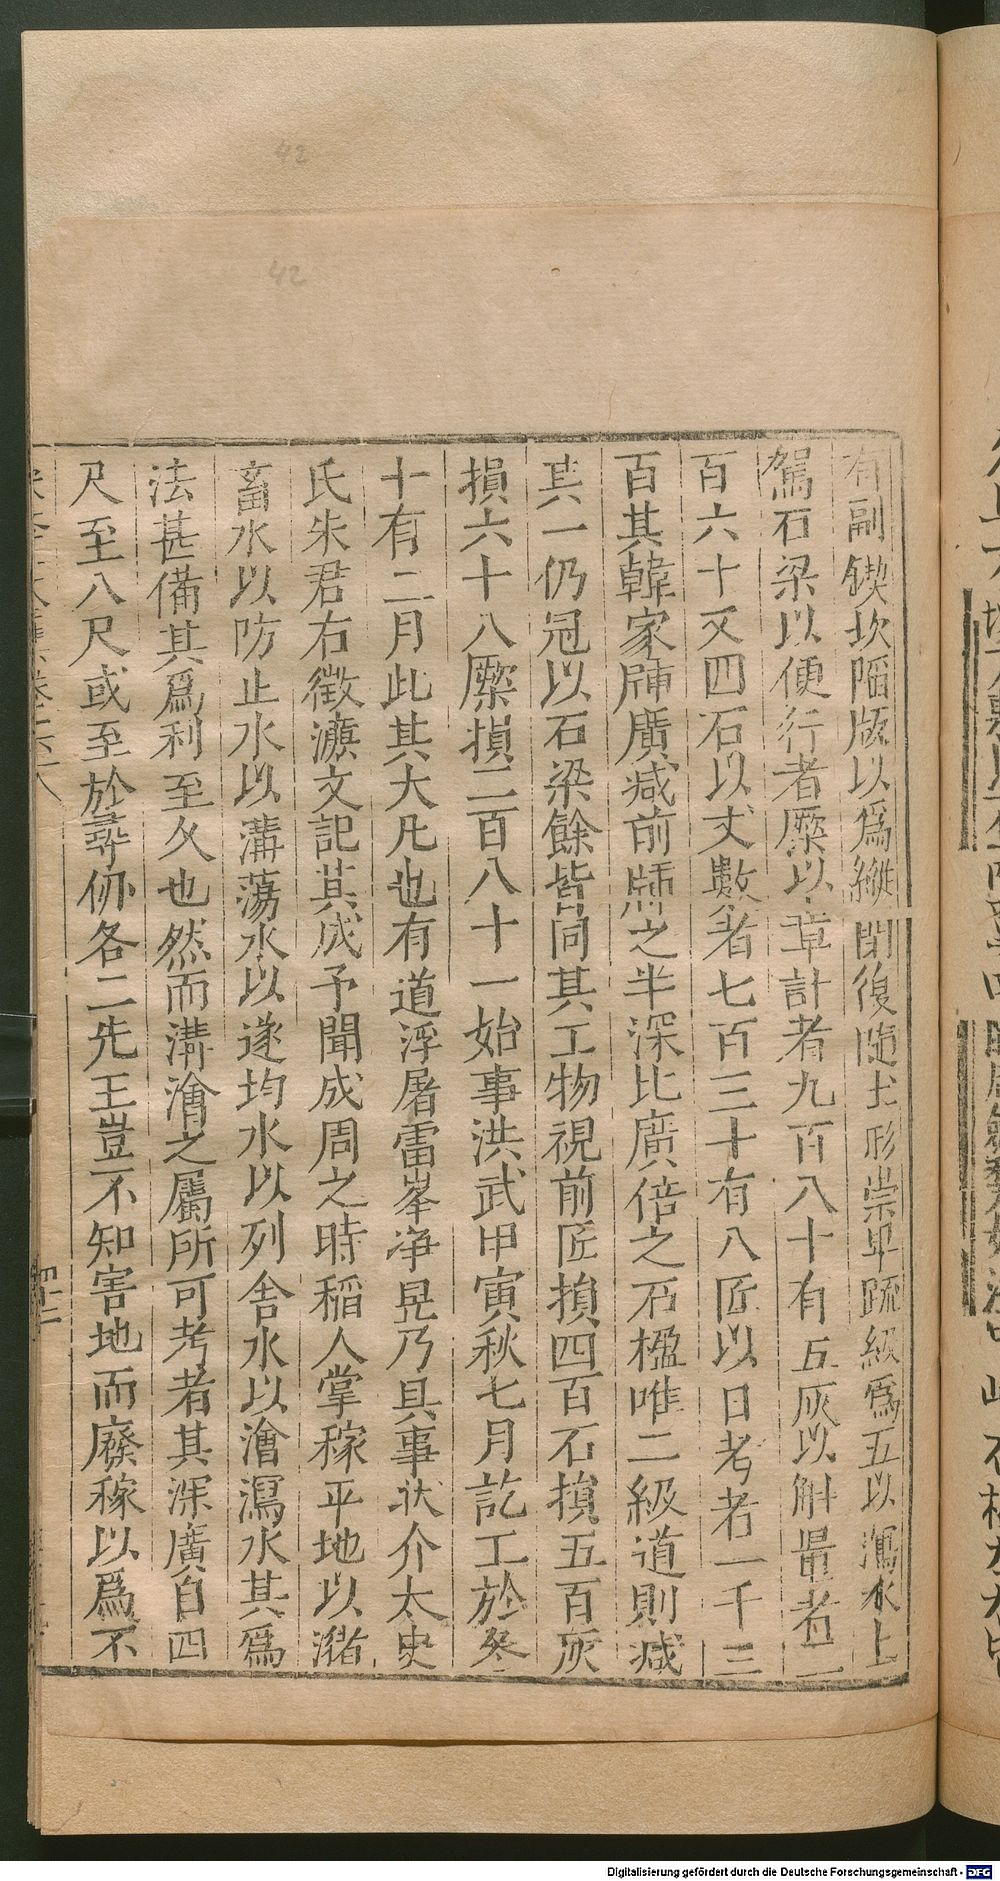 有副鍥坎陷版以為縱閉復隨土形崇卑疏級為五以瀉水上
駕石梁以便行者㮣以章計者九百八十有五灰以斛量者二
百六十又四石以丈數者七百三十有八匠以日考者一千三
百其韓家牌廣減前牌之半深比廣倍之石楹唯二級道則減
其一仍冠以石梁餘皆同其工物視前匠損四百石損五百灰
損六十八㮣損二百八十一始事洪武甲寅秋七月訖工於冬
十有二月此其大凡也有道浮屠雷峯淨昱乃具事狀介太史
氏朱君右徵濂文記其成予聞成周之時稻人掌稼平地以瀦
畜水以防止水以溝蕩水以遂均水以列舍水以澮瀉水其為
法甚備其為利至久也然而溝澮之屬所可考者其深廣自四
尺至八尺或至於尋仞各二先王豈不知害地而廢稼以為不
四十二
42
42
Digitalisierung gefördert durch die Deutsche Forschungsgemeinschaft - DFG